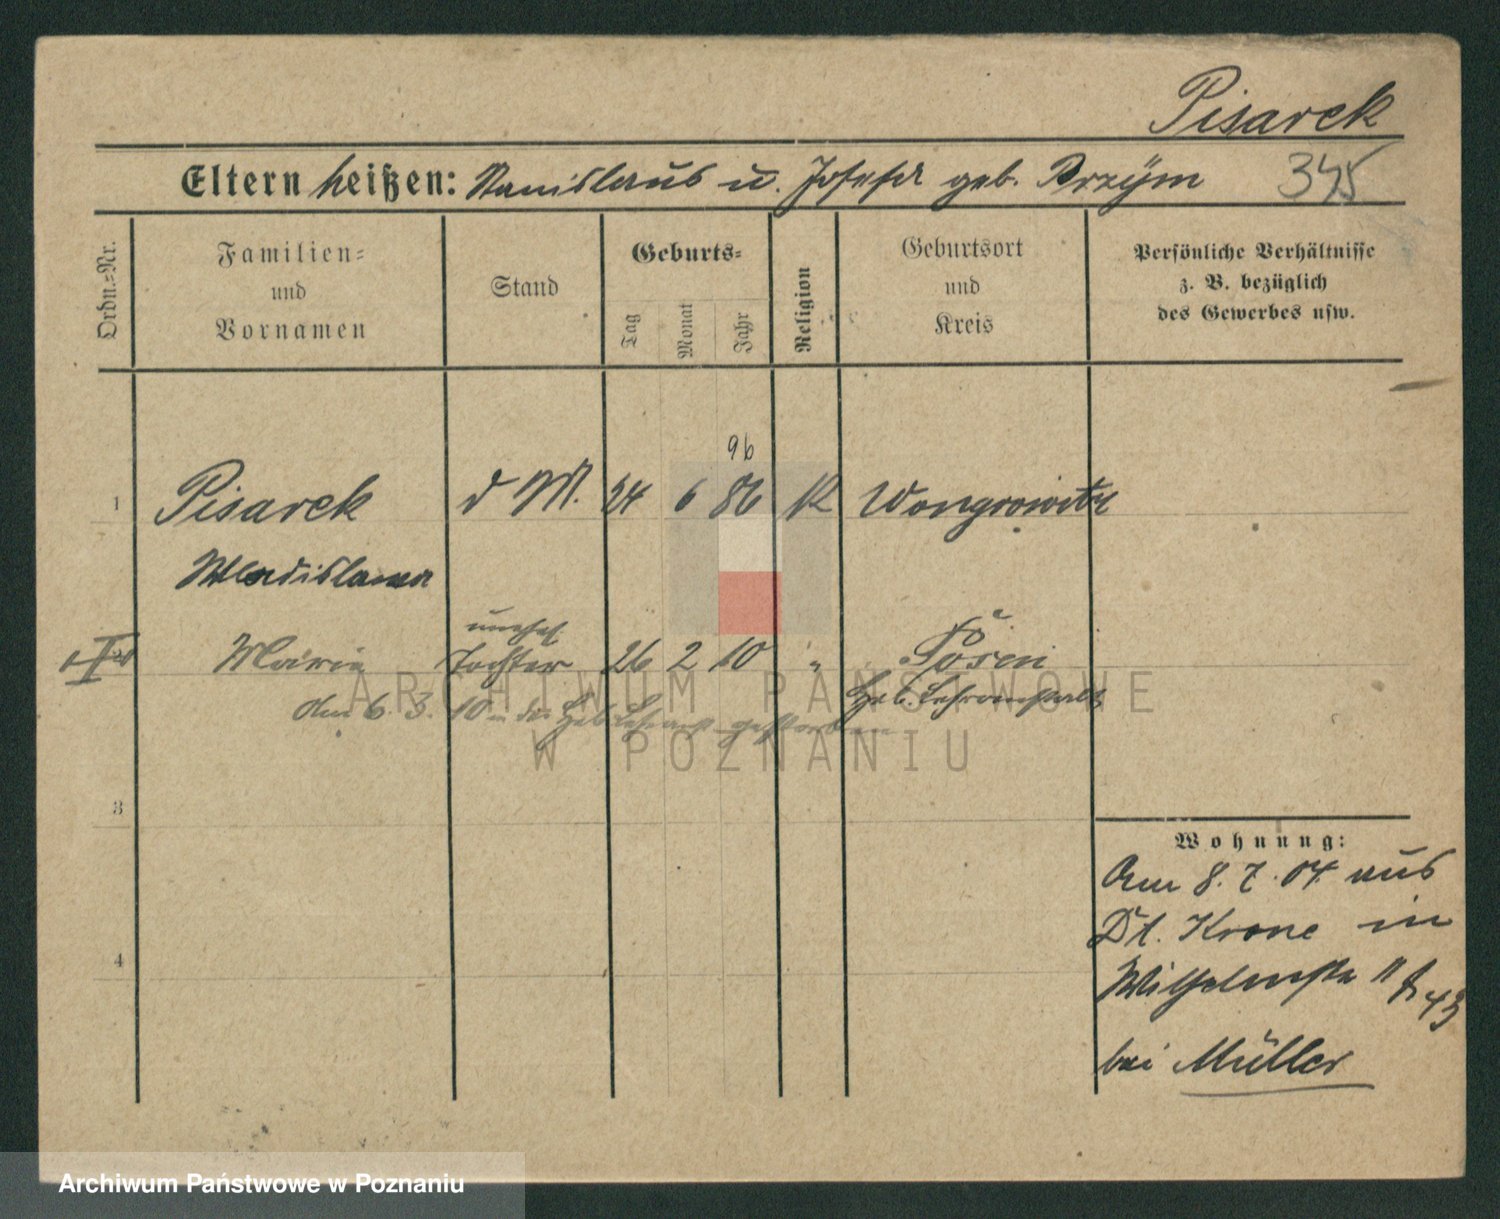 Pisarek
Eltern heißen: Stanislaus u. Josefa geb. Przym 345
Ordn.-Nr.
Familien-
und
Vornamen
Stand
Geburts-
Tag
Monat
Jahr
Religion
Geburtsort
und
Kreis
Persönliche Verhältnisse
z. B. bezüglich
des Gewerbes usw.
96
1 Pisarek d M. 24 6 86 K Wongrowitz
Wladislawa
unehel.
Maria Tochter 26 2 10 " Posen
Heb. Lehranstalt
Am 6. 3. 10 in der Heb. Lehranst. gestorben
3
4
Wohnung:
Am 8. 7. 04 aus
Dt. Krone in
Wilhelmstr
bei Müller
ARCHIWUM PAŃSTWOWE
W POZNANIU
Archiwum Państwowe w Poznaniu